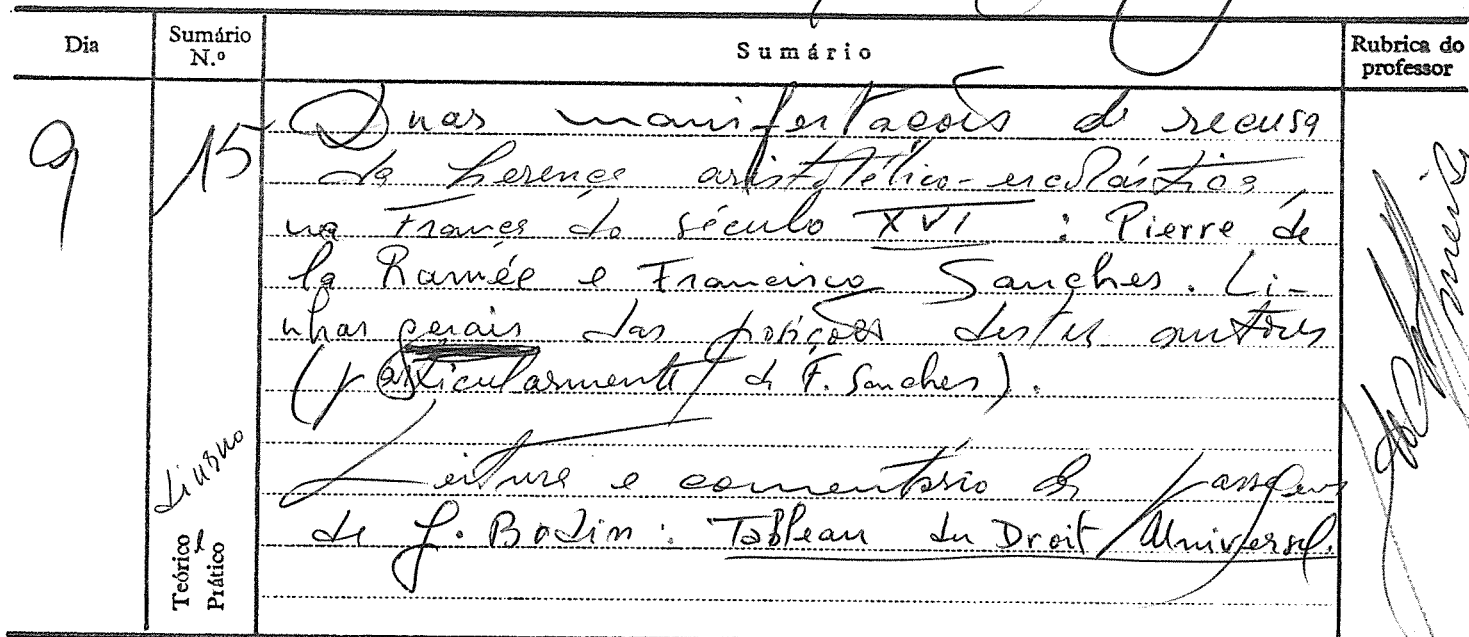 Dia
Sumário N.º
Sumário
Rubrica do professor
9
15
Duas manifestações de recusa
da herença aristotélico-escolástica,
na França do século XVI : Pierre de
la Ramée e Francisco Sanches. Li-
nhas gerais das posições destes autores
(particularmente de F. Sanches).
Leitura e comentário de passagens
de J. Bodin : Tableau du Droit Universel.
Diurno
Teórico e Prático